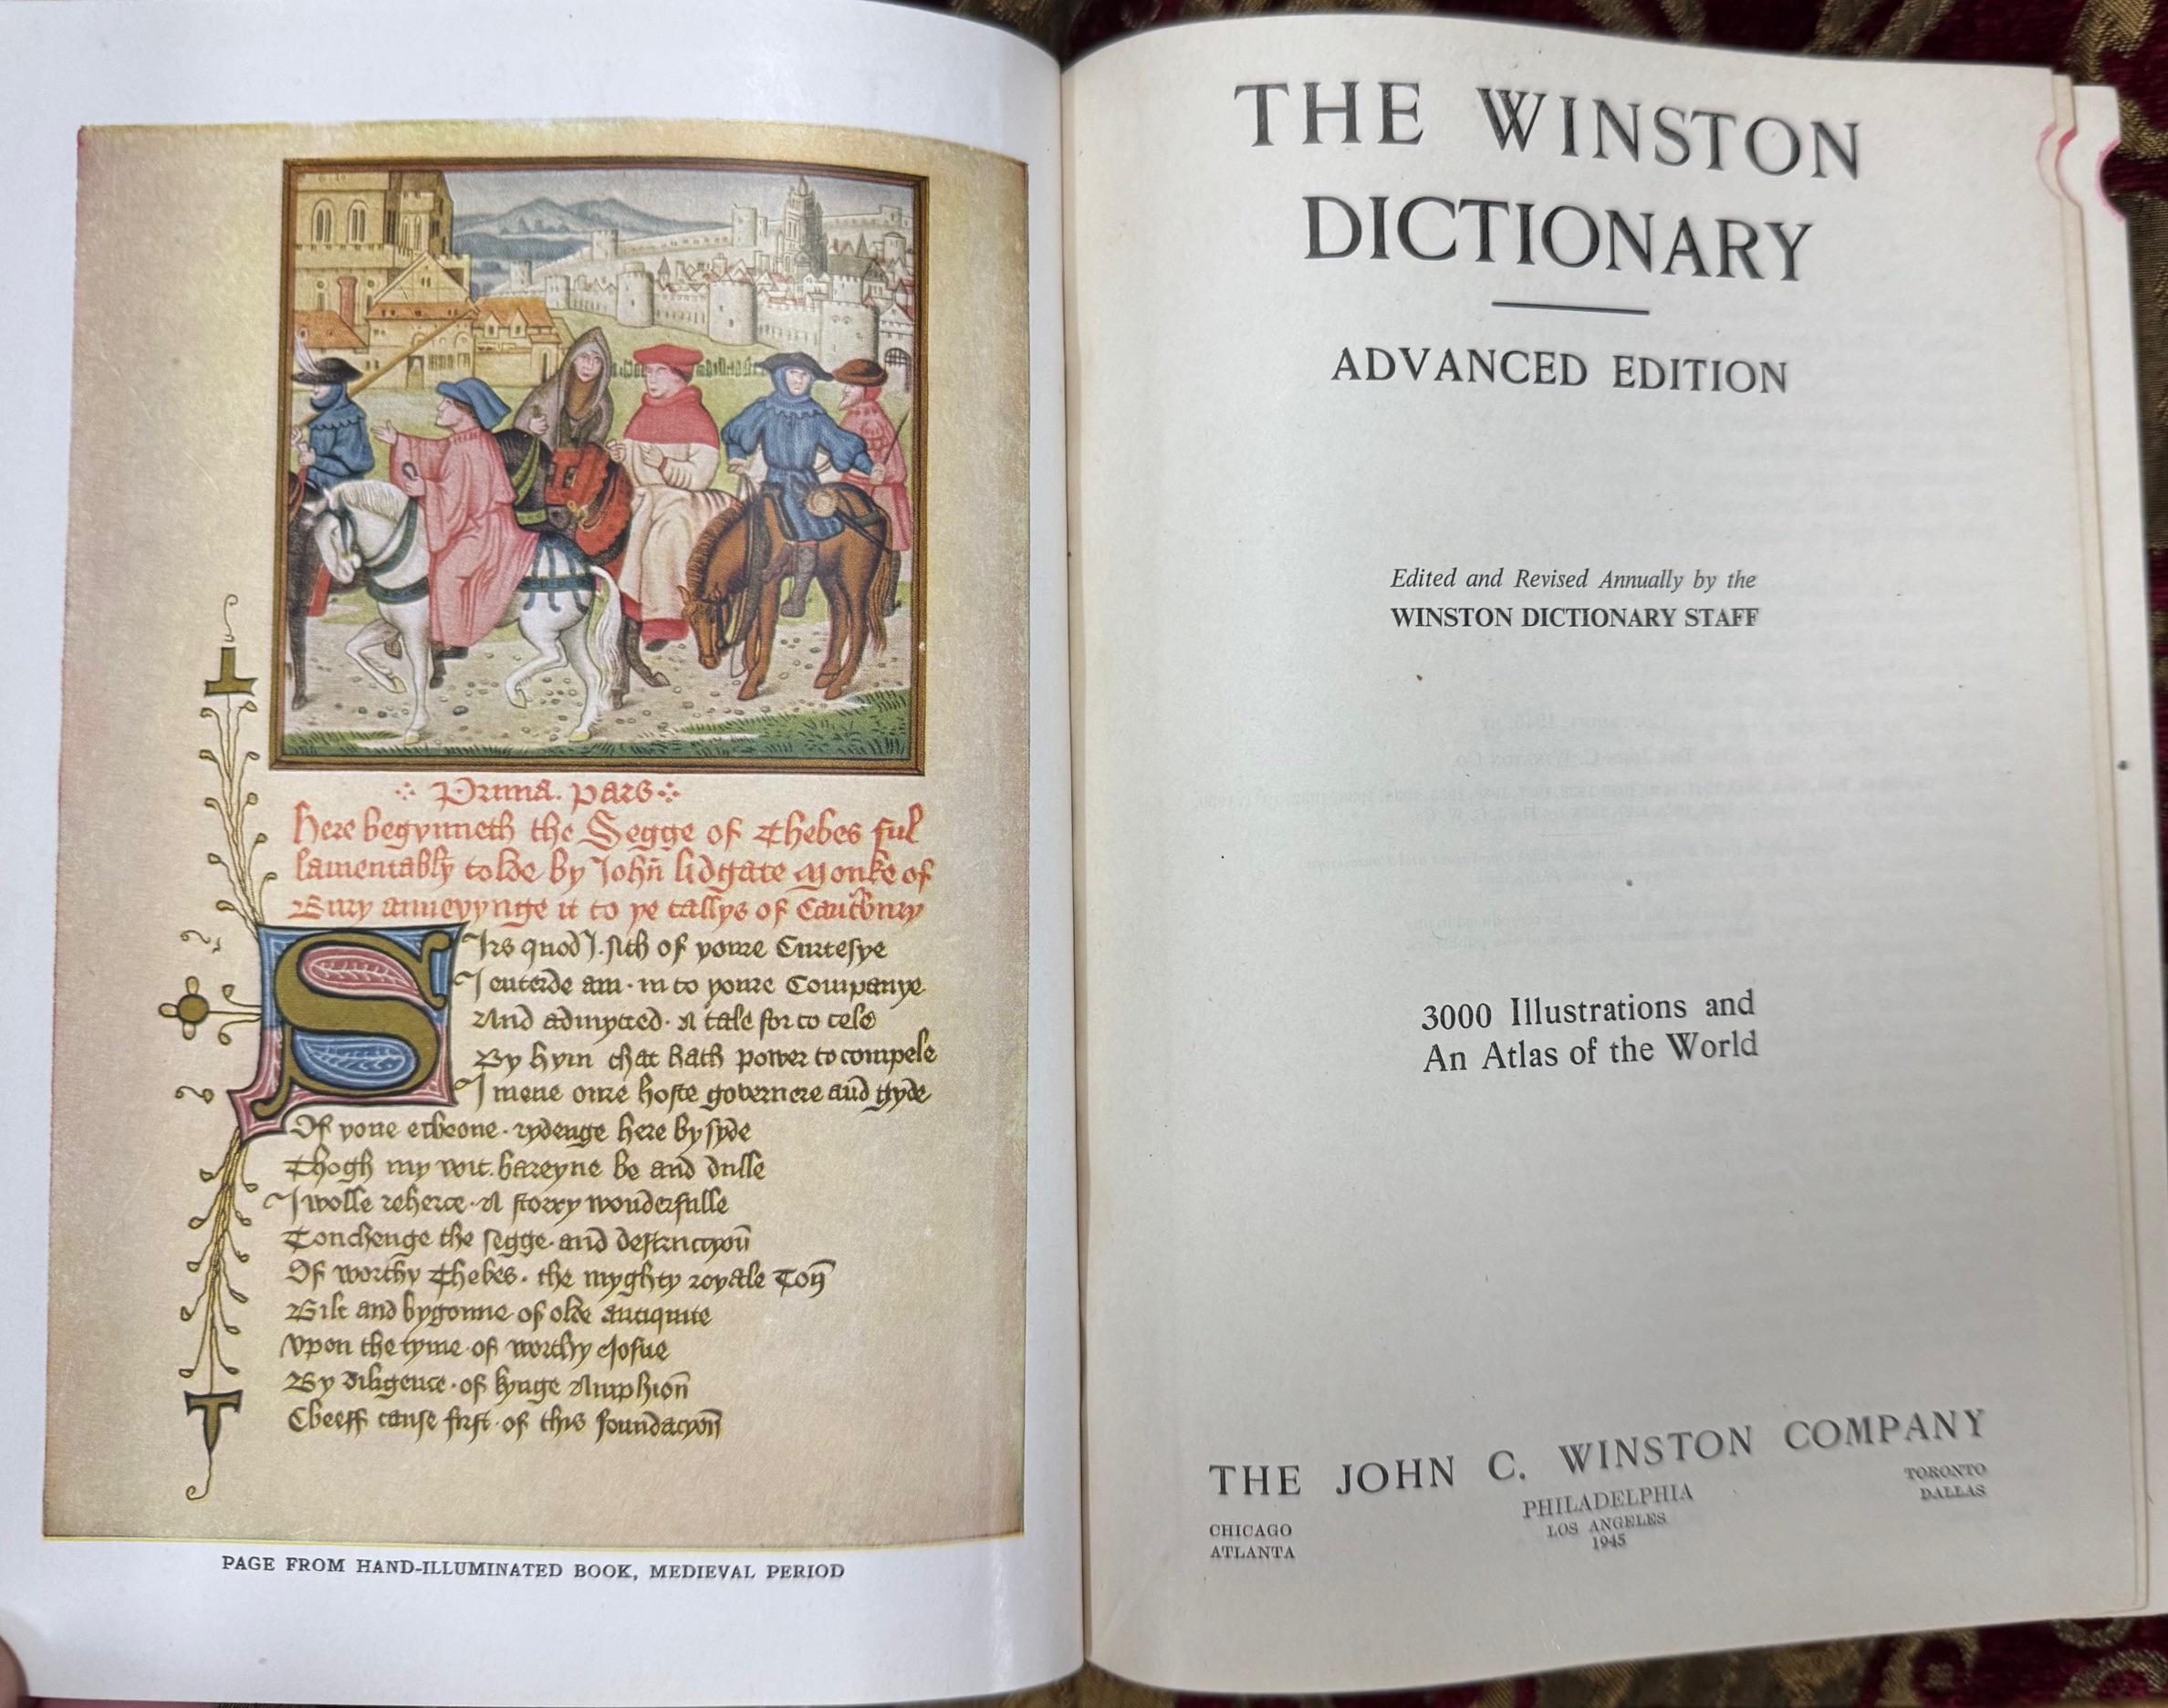 Prima. pars
Here begynneth the Segge of Thebes ful
lamentably tolde by John lidgate Monke of
Bury annexynge it to ye tallys of Cantbury
Sirs quod I. sith of youre Curtesye
I enterde am. in to youre Companye
And admytted. A tale for to tele
By hym that hath power to compele
I mene oure hoste governere and gyde
Of yone echeone. rydenge here by syde
Thogh my wit. bareyne be and dulle
I wolle reherce. A storry wonderfulle
Touchenge the segge. and destruccyon
Of worthy Thebes. the myghty royale Ton
Bilt and bygonne. of olde antiquite
Vpon the tyme. of worthy Josue
By diligence. of kynge Amphion
Cheeff cause first. of this foundacyon
PAGE FROM HAND-ILLUMINATED BOOK, MEDIEVAL PERIOD
THE WINSTON
DICTIONARY
ADVANCED EDITION
Edited and Revised Annually by the
WINSTON DICTIONARY STAFF
3000 Illustrations and
An Atlas of the World
THE JOHN C. WINSTON COMPANY
CHICAGO
ATLANTA
PHILADELPHIA
LOS ANGELES
1945
TORONTO
DALLAS